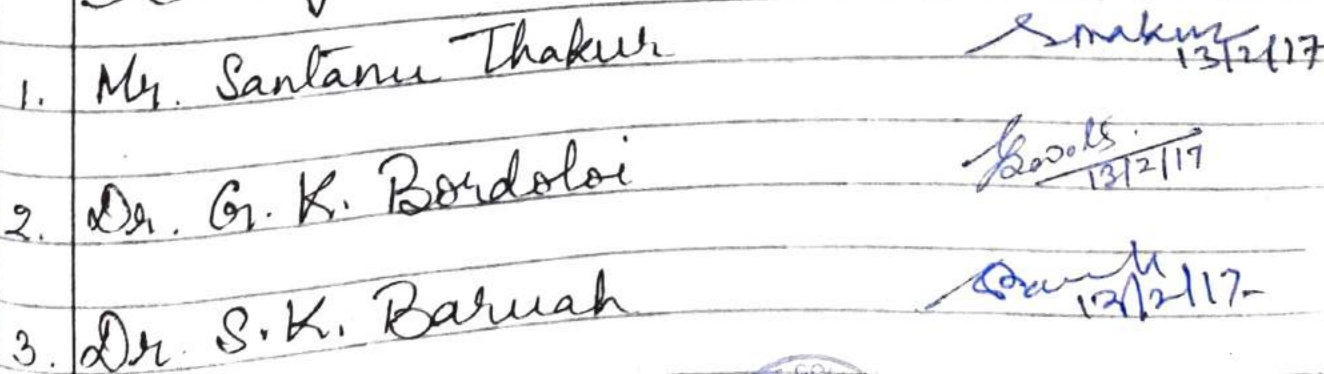 1. Mr. Santanu Thakur 13/2/17
2. Dr. G. K. Bordoloi 13/2/17
3. Dr. S. K. Baruah 13/2/17